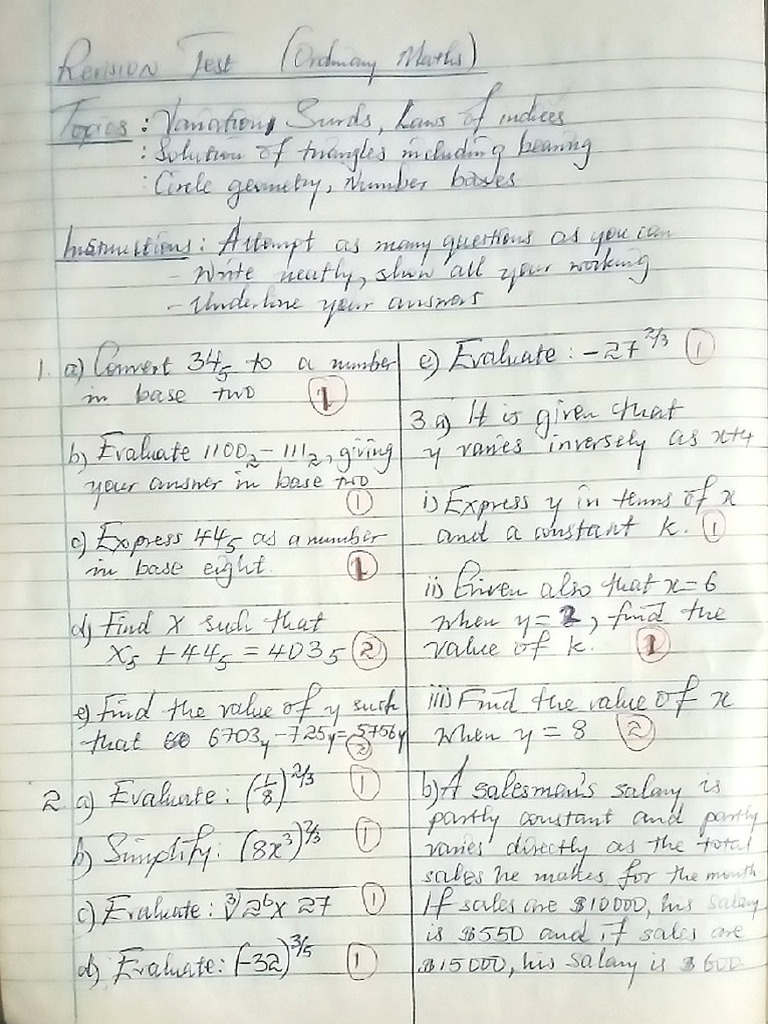 Revision Test (Ordinary Maths)
Topics : Variation, Surds, Laws of indices
: Solution of triangles including bearing
: Circle geometry, Number bases
Instructions : Attempt as many questions as you can
- Write neatly, show all your working
- Underline your answers
1. a) Convert 34₅ to a number
in base two (1)
b) Evaluate 1100₂ - 111₂, giving
your answer in base two
(1)
c) Express 44₅ as a number
in base eight. (1)
d) Find X such that
X₅ + 44₅ = 403₅ (2)
e) Find the value of y such
that 6703y - 725y = 5756y
(2)
2 a) Evaluate : (1/8)^2/3 (1)
b) Simplify : (8x³)^2/3 (1)
c) Evaluate : ∛2⁶ x 27 (1)
d) Evaluate : (-32)^3/5 (1)
e) Evaluate : -27^2/3 (1)
3 a) It is given that
y varies inversely as x+4
i) Express y in terms of x
and a constant k. (1)
ii) Given also that x = 6
when y = 2, find the
value of k. (1)
iii) Find the value of x
when y = 8 (2)
b) A salesman's salary is
partly constant and partly
varies directly as the total
sales he makes for the month
If sales are $10000, his salary
is $550 and if sales are
$15000, his salary is $600